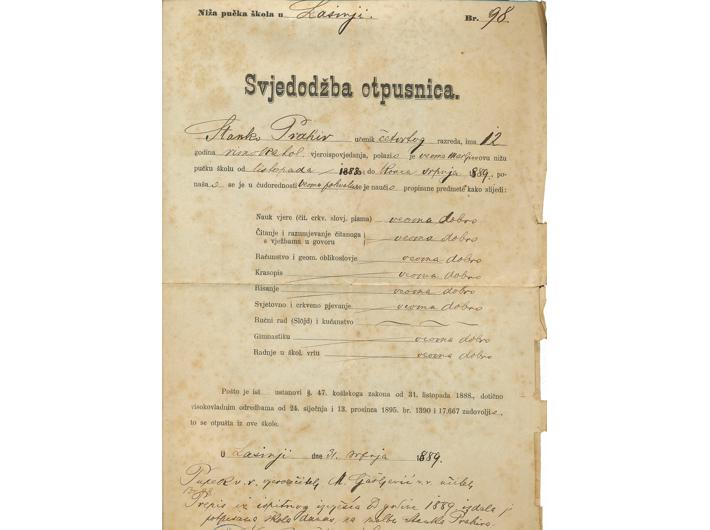 Niža pučka škola u Lasinji. Br. 98.
Svjedodžba otpusnica.
Stanko Prahir učenik četvrtog razreda, ima 12
godina rimo-katol. vjeroispovjedanja, polazio je veoma marljivo ovu nižu
pučku školu od listopada 1888. do konca srpnja 1889. po-
našao se je u ćudorednosti veoma pohvalno te je naučio propisane predmete kako slijedi:
Nauk vjere (čit. crkv. slovj. pisma) veoma dobro
Čitanje i razumjevanje čitanoga
s vježbama u govoru veoma dobro
Računstvo i geom. oblikoslovje veoma dobro
Krasopis veoma dobro
Risanje veoma dobro
Svjetovno i crkveno pjevanje veoma dobro
Ručni rad (Slöjd) i kućanstvo
Gimnastiku veoma dobro
Radnje u škol. vrtu veoma dobro
Pošto je ist ustanovi §. 47. košlskoga zakona od 31. listopada 1888., dotično
visokovladnim odredbama od 24. siječnja i 13. prosinca 1895. br. 1390 i 17.667 zadovoljio,
to se otpušta iz ove škole.
U Lasinji dne 31. srpnja 1889.
v. r. M. v. r. učitelj
Prepis iz ispitnog izvješća od godine 1889 izdala
potpisano danas na molbu Stanka Prahira.